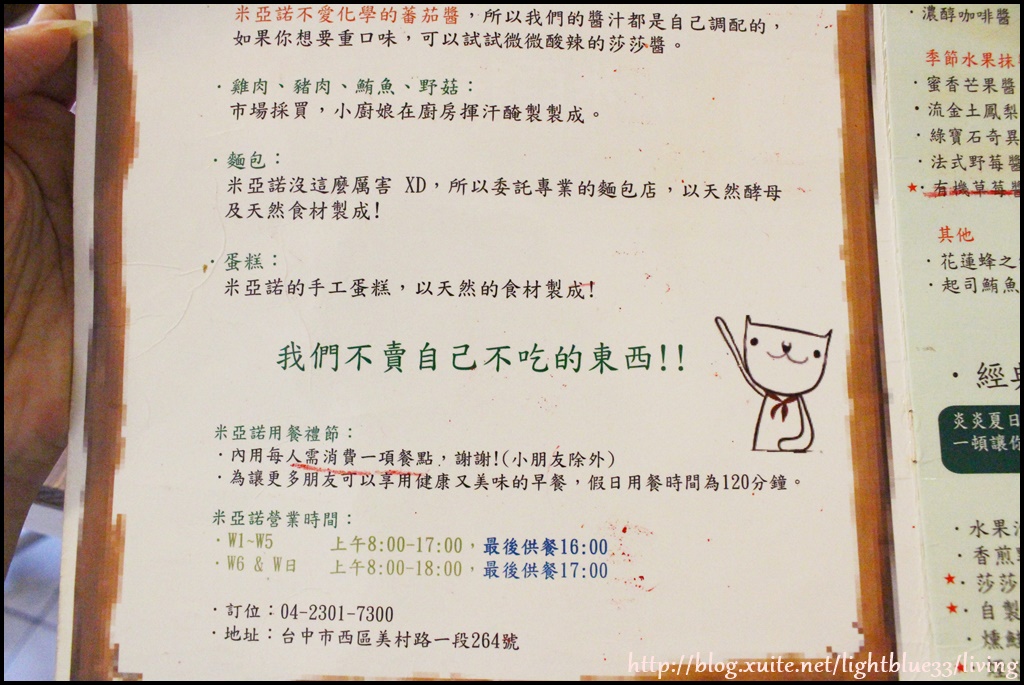 米亞諾不愛化學的蕃茄醬，所以我們的醬汁都是自己調配的，
如果你想要重口味，可以試試微微酸辣的莎莎醬。
·雞肉、豬肉、鮪魚、野菇：
市場採買，小廚娘在廚房揮汗醃製製成。
·麵包：
米亞諾沒這麼厲害 XD，所以委託專業的麵包店，以天然酵母
及天然食材製成!
·蛋糕：
米亞諾的手工蛋糕，以天然的食材製成!
我們不賣自己不吃的東西!!
米亞諾用餐禮節：
·內用每人需消費一項餐點，謝謝!(小朋友除外)
·為讓更多朋友可以享用健康又美味的早餐，假日用餐時間為120分鐘。
米亞諾營業時間：
·W1~W5 上午8:00-17:00，最後供餐16:00
·W6 & W日 上午8:00-18:00，最後供餐17:00
·訂位：04-2301-7300
·地址：台中市西區美村路一段264號
·濃醇咖啡醬
季節水果抹
·蜜香芒果醬
·流金土鳳梨
·綠寶石奇異
·法式野莓醬
★·有機草莓醬
其他
·花蓮蜂之
·起司鮪魚
·經典
炎炎夏日
一頓讓你
·水果
·香煎
★·莎莎
★·自製
·燻鮭
http://blog.xuite.net/lightblue33/living